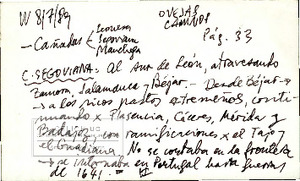 W 8/7/89
OVEJAS
CAMINOS
Pág. 33
- Cañadas Leonesa
Segoviana
Manchega
C. SEGOVIANA: Al sur de León, atravesando
Zamora, Salamanca y Béjar. - Desde Béjar →
→ a los ricos pastos extremeños, conti-
nuando x Plasencia, Cáceres, Mérida y
Badajoz, con ramificaciones x el Tajo y
el Guadiana. No se cortaba en la frontera
→ se internaba en Portugal hasta guerras
de 1641. =